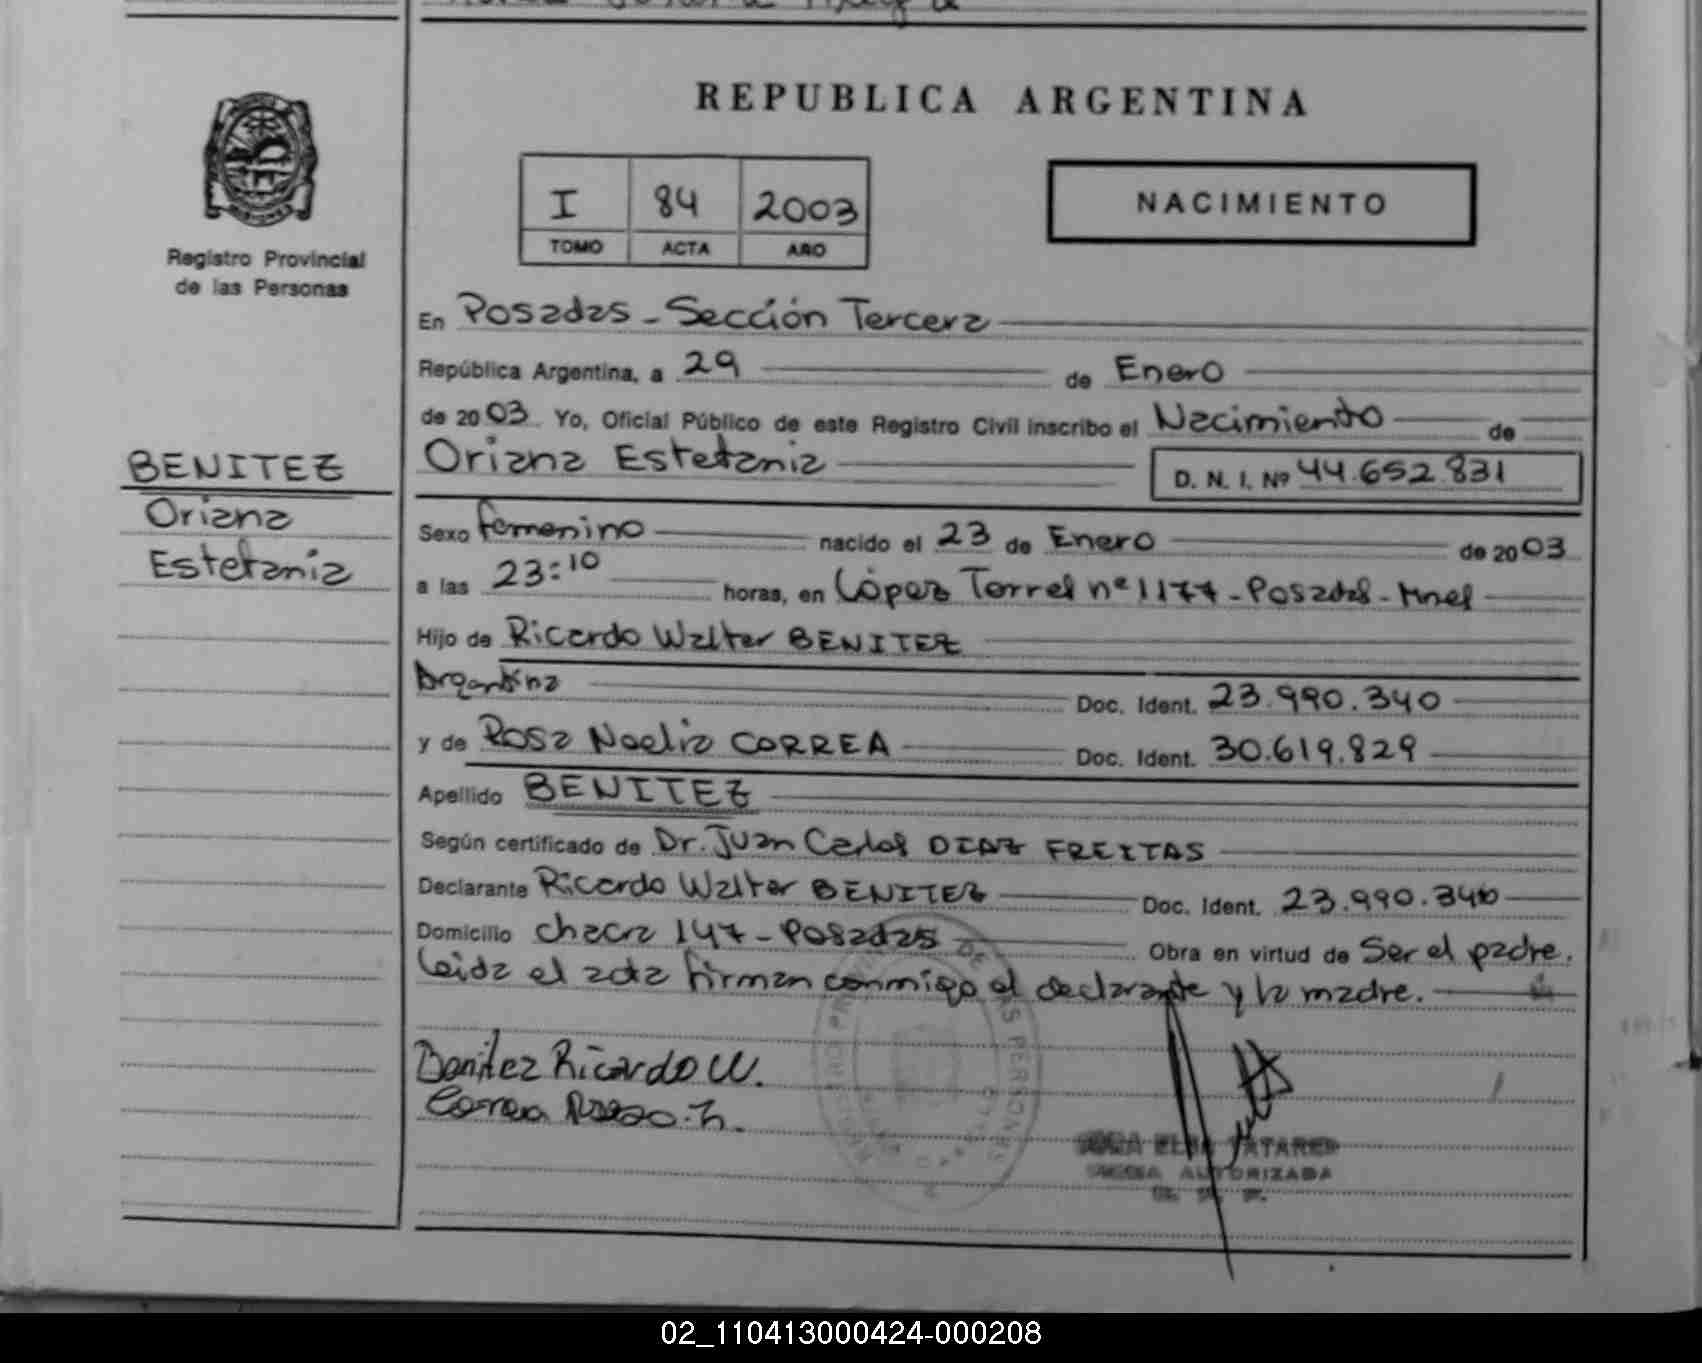 REPUBLICA ARGENTINA
I 84 2003
TOMO ACTA AÑO
NACIMIENTO
Registro Provincial
de las Personas
En Posadas - Sección Tercera
República Argentina, a 29 de Enero
de 2003 Yo, Oficial Público de este Registro Civil inscribo el Nacimiento de
Oriana Estefania D. N. I. Nº 44.652.831
BENITEZ
Oriana
Estefania
Sexo femenino nacido el 23 de Enero de 2003
a las 23:10 horas, en López Torres nº 1177 - Posadas - Mnes
Hijo de Ricardo Walter BENITEZ
Argentina Doc. Ident. 23.990.340
y de Rosa Noelia CORREA Doc. Ident. 30.619.829
Apellido BENITEZ
Según certificado de Dr. Juan Carlos DIAZ FREITAS
Declarante Ricardo Walter BENITEZ Doc. Ident. 23.990.340
Domicilio chacra 147 - Posadas Obra en virtud de Ser el padre.
Leida el acta firman conmigo el declarante y la madre.
Benitez Ricardo W.
Correa Rosa N.
AUTORIZADA
02_110413000424-000208